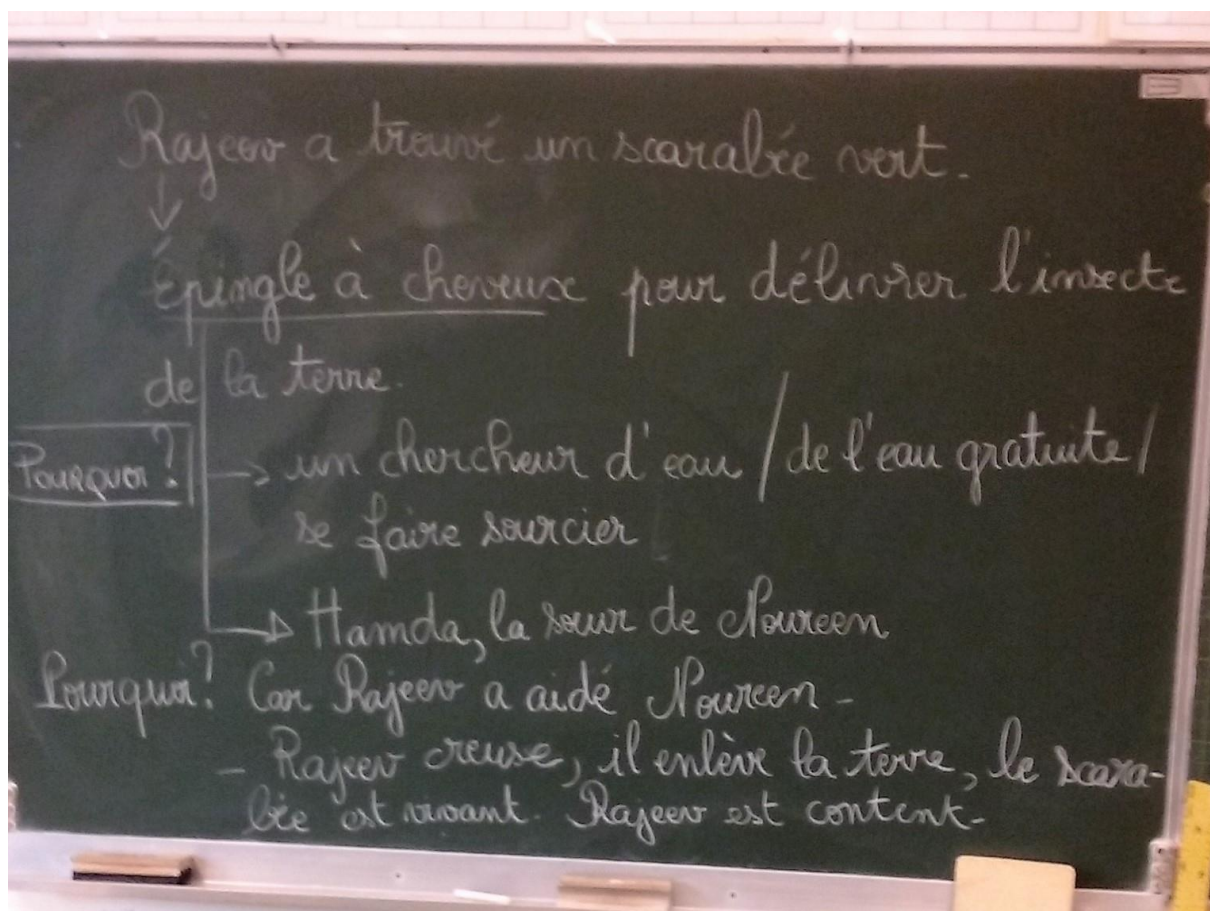 Rajeev a trouvé un scarabée vert.
↓
Épingle à cheveux pour délivrer l'insecte
de la terre.
Pourquoi? → un chercheur d'eau / de l'eau gratuite /
se faire sourcier
→ Hamda, la sœur de Noureen
Pourquoi? Car Rajeev a aidé Noureen -
- Rajeev creuse, il enlève la terre, le scara-
bée est vivant. Rajeev est content.